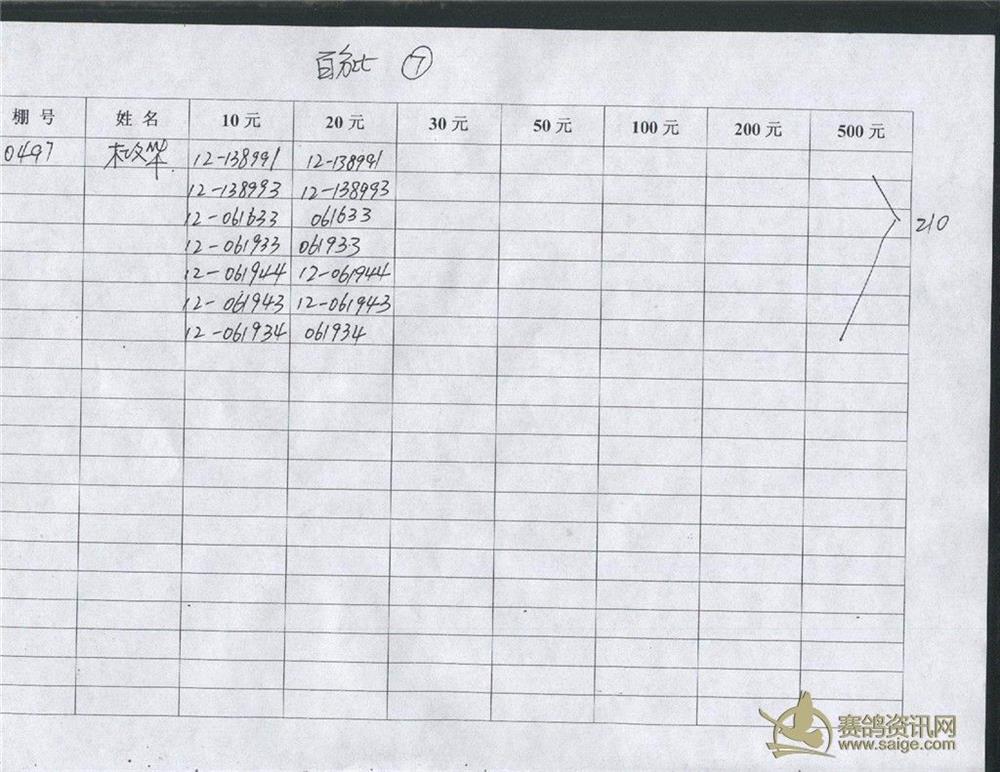 百分比 ⑦
棚号 姓名 10元 20元 30元 50元 100元 200元 500元
0497 12-138991 12-138991
12-138993 12-138993
12-061633 061633
12-061933 061933
210
12-061944 12-061944
12-061943 12-061943
12-061934 061934
赛鸽资讯网
www.saige.com